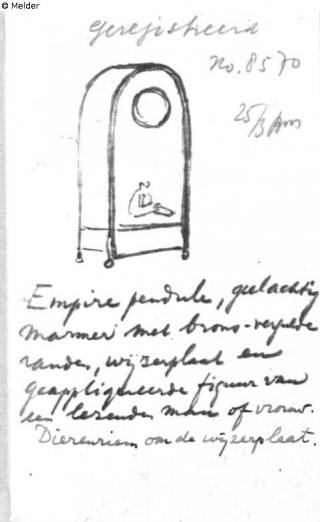 © Melder
Geregistreerd
no. 8570
25/3
Empire pendule, geelachtig
marmer met brons-vergulde
randen, wijzerplaat en
geappliqueerde figuur van
een lezende man of vrouw.
Dierenriem om de wijzerplaat.